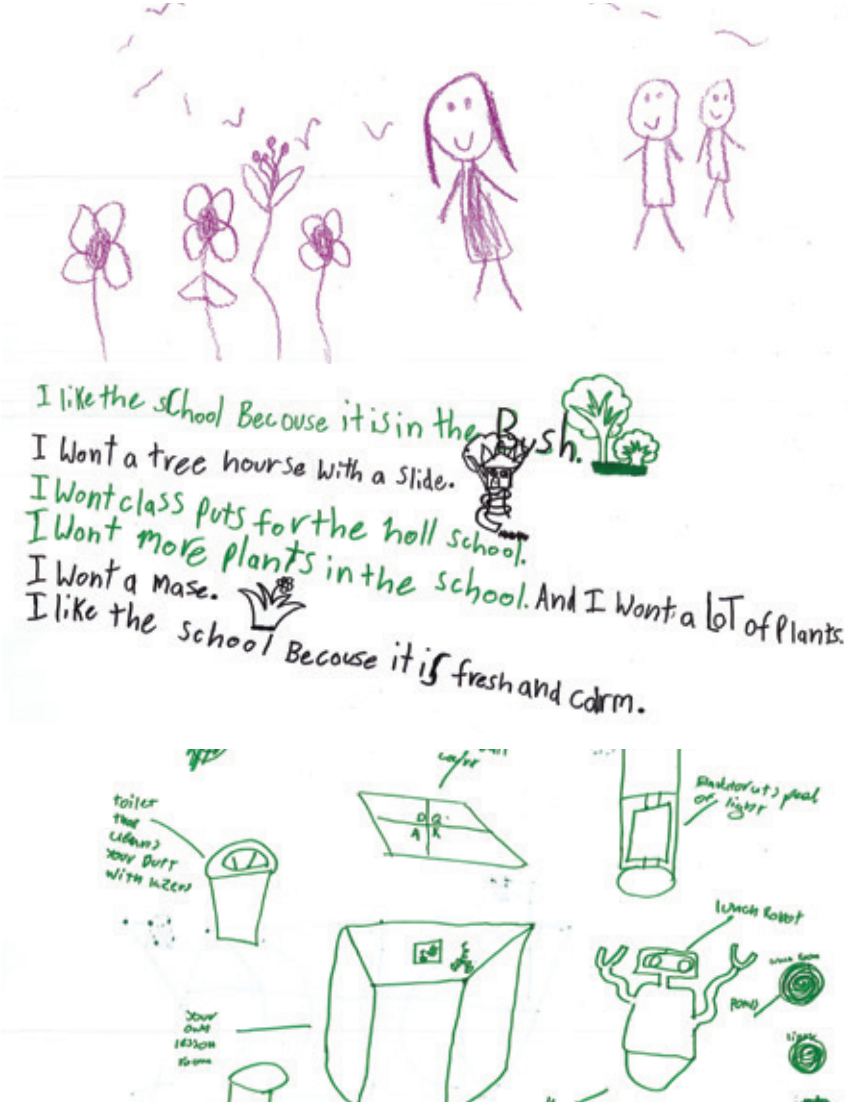 I like the school Becouse it is in the Bush.
I Wont a tree hourse With a Slide.
I Wont class puts for the holl school.
I Wont more plants in the school. And I Wont a LOT of Plants.
I Wont a mase.
I like the school Becouse it is fresh and carm.
toilet
that
cleans
your Butt
With
D Q
A K
of light
lunch Robot
your
own
lesson
room